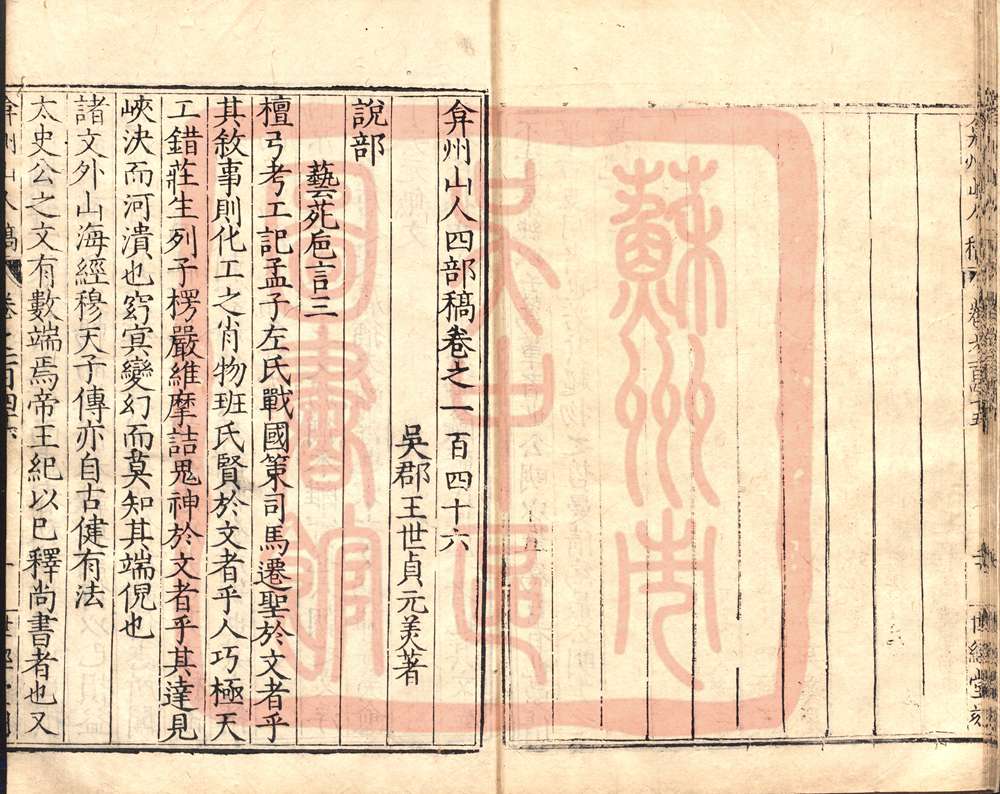 弇州山人稿
世經堂刻
弇州山人四部稿卷之一百四十六
吳郡王世貞元美著
說部
藝苑卮言三
檀弓考工記孟子左氏戰國策司馬遷聖於文者乎
其敘事則化工之肖物班氏賢於文者乎人巧極天
工錯莊生列子楞嚴維摩詰鬼神於文者乎其達見
峽決而河潰也窈冥變幻而莫知其端倪也
諸文外山海經穆天子傳亦自古健有法
太史公之文有數端焉帝王紀以已釋尚書者也又
蘇州市
圖書館